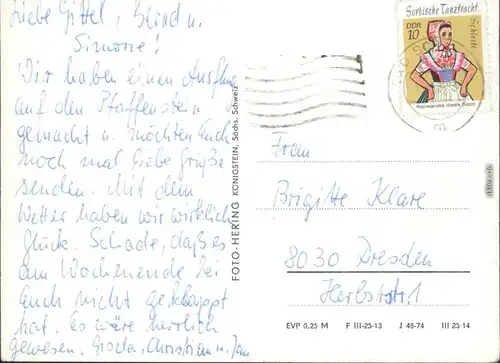 Liebe Gittel, Bernd u.
Simone!
Wir haben einen Ausflug
auf den Pfaffenstein
gemacht u. möchten Euch
noch mal liebe Grüße
senden. Mit dem
Wetter haben wir wirklich
Glück. Schade, daß es
am Wochenende bei
Euch nicht geklappt
hat. Es wäre herrlich
gewesen. Gisela, Christian u. Jan
FOTO-HERING KÖNIGSTEIN, Sächs. Schweiz
Sorbische Tanztracht
DDR
10
Schleife
Frau
Brigitte Klare
8030 Dresden
Herbststr. 1
EVP 0,25 M F III-25-13 J 48-74 III 25 14